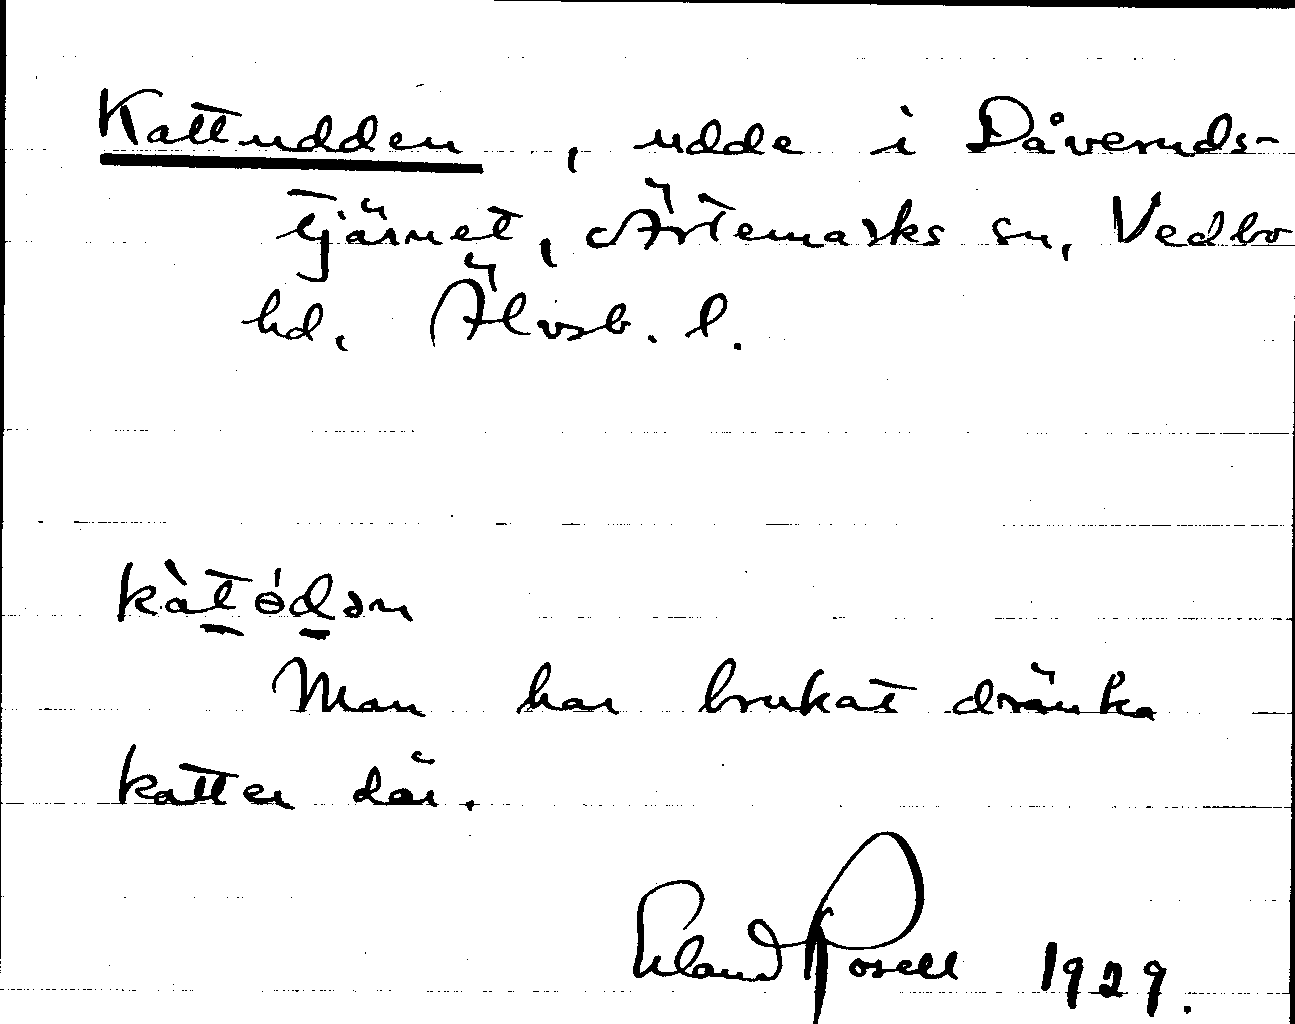 Kattudden, udde i Dåveruds-
tjärnet, Ärtemarks sn, Vedbo
hd. Älvsb. l.
kàt̲ɵ́d̲ən
Man har brukat dränka
katter där.
Erland Rosell 1929.